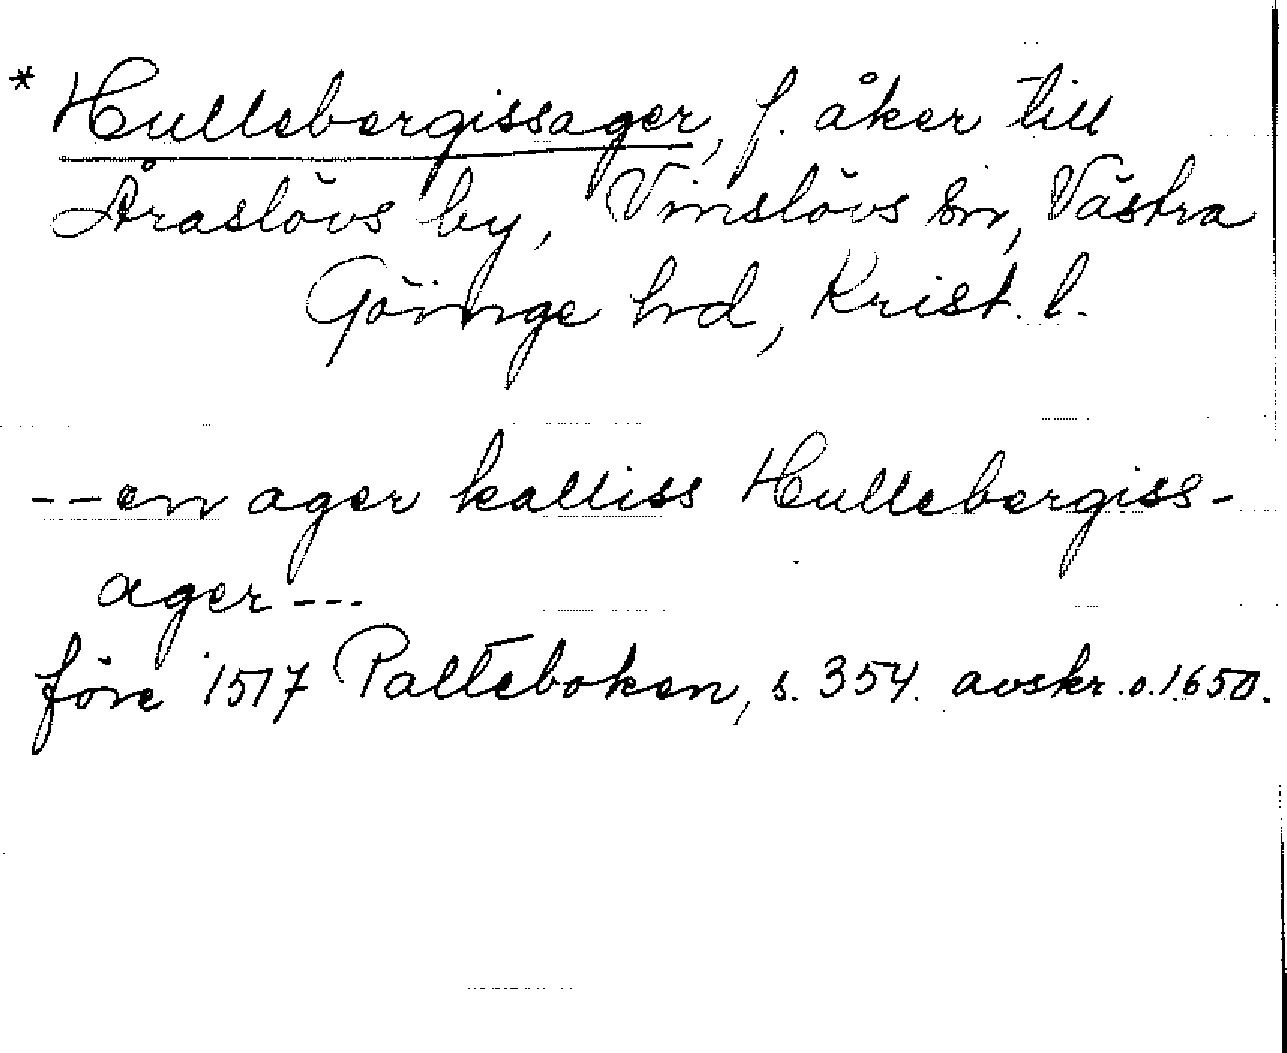 * Hullebergissager, f. åker till
Åraslövs by, Vinslövs sn, Västra
Göinge hd, Krist. l.
-- en ager kalliss Hullebergiss-
ager ---
före 1517 Palteboken, s. 354. avskr. o. 1650.